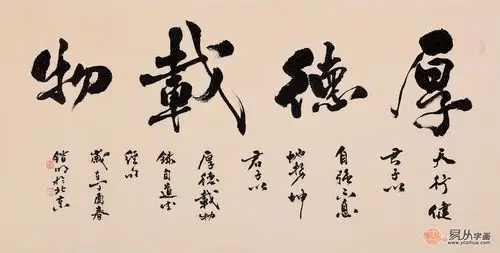 厚德載物
天行健
君子以
自強不息
地勢坤
君子以
厚德載物
錄自
酉春
於北京
易从字画
www.yczihua.com